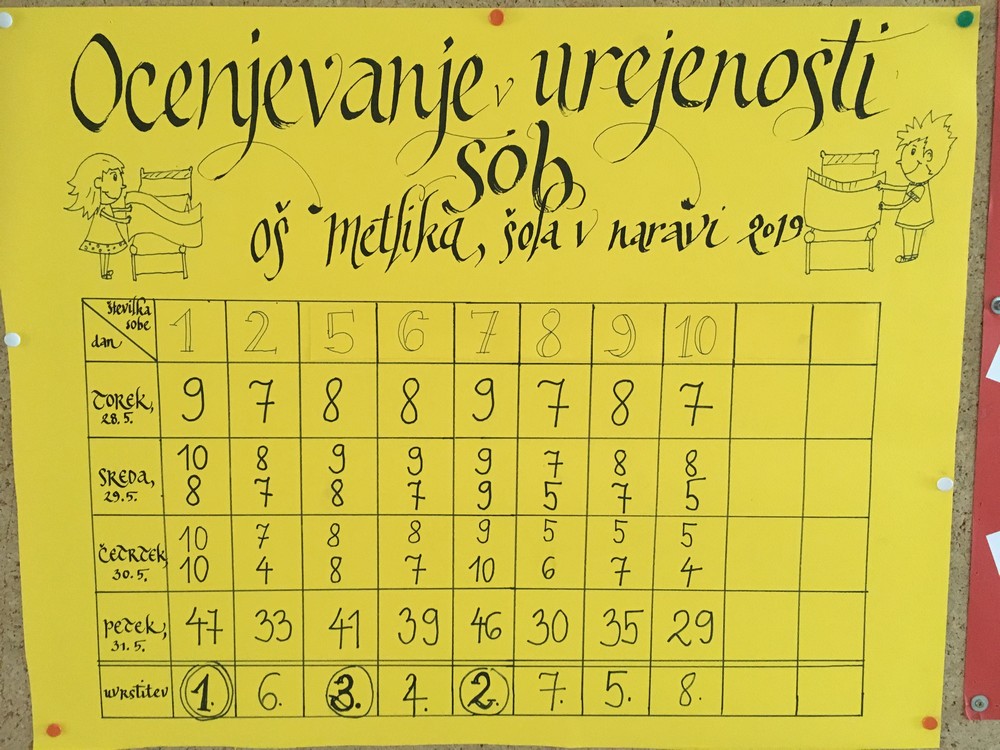 Ocenjevanje v urejenosti
sob
oš Metlika, šola v naravi 2019
številka sobe dan 1 2 5 6 7 8 9 10
TOREK, 28.5. 9 7 8 8 9 7 8 7
SREDA, 29.5. 10 8 9 9 9 7 8 8
8 7 8 7 9 5 7 5
ČETRTEK 30.5. 10 7 8 8 9 5 5 5
10 4 8 7 10 6 7 4
PETEK, 31.5. 47 33 41 39 46 30 35 29
uvrstitev 1. 6. 3. 4. 2. 7. 5. 8.